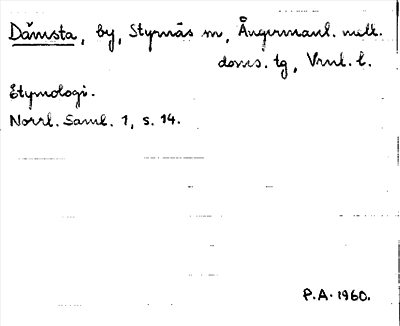 Dämsta, by, Styrnäs sn, Ångermanl. mell.
doms. tg, Vrnl. l.
Etymologi.
Norrl. Saml. 1, s. 14.
P.A. 1960.